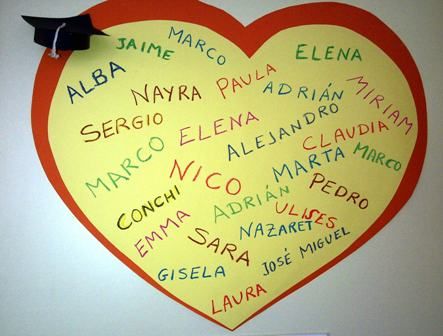 MARCO
JAIME
ELENA
ALBA
PAULA
NAYRA
ADRIÁN
MIRIAM
SERGIO
ELENA
ALEJANDRO
CLAUDIA
MARCO
MARTA
MARCO
NICO
PEDRO
CONCHI
ADRIÁN
ULISES
EMMA
NAZARET
SARA
JOSÉ MIGUEL
GISELA
LAURA